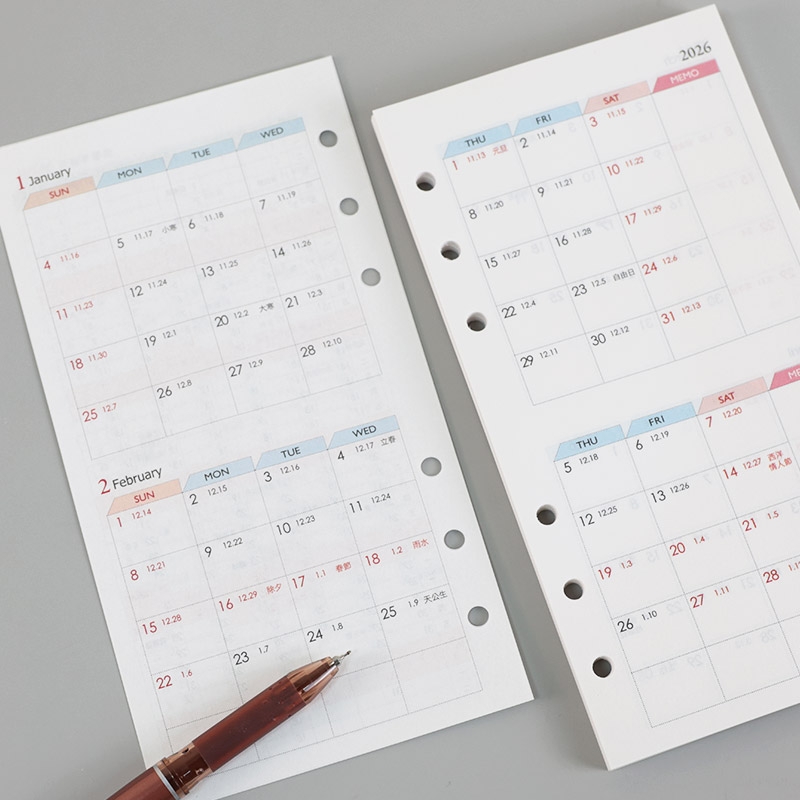 1 January
SUN MON TUE WED
4 11.16 5 11.17 小寒 6 11.18 7 11.19
11 11.23 12 11.24 13 11.25 14 11.26
18 11.30 19 12.1 20 12.2 大寒 21 12.3
25 12.7 26 12.8 27 12.9 28 12.10
2 February
SUN MON TUE WED
1 12.14 2 12.15 3 12.16 4 12.17 立春
8 12.21 9 12.22 10 12.23 11 12.24
15 12.28 16 12.29 除夕 17 1.1 春節 18 1.2 雨水
22 1.6 23 1.7 24 1.8 25 1.9 天公生
2026
THU FRI SAT MEMO
1 11.13 元旦 2 11.14 3 11.15
8 11.20 9 11.21 10 11.22
15 11.27 16 11.28 17 11.29
22 12.4 23 12.5 自由日 24 12.6
29 12.11 30 12.12 31 12.13
THU FRI SAT ME
5 12.18 6 12.19 7 12.20
12 12.25 13 12.26 14 12.27 西洋
情人節
19 1.3 20 1.4 21 1.5
26 1.10 27 1.11 28 1.12